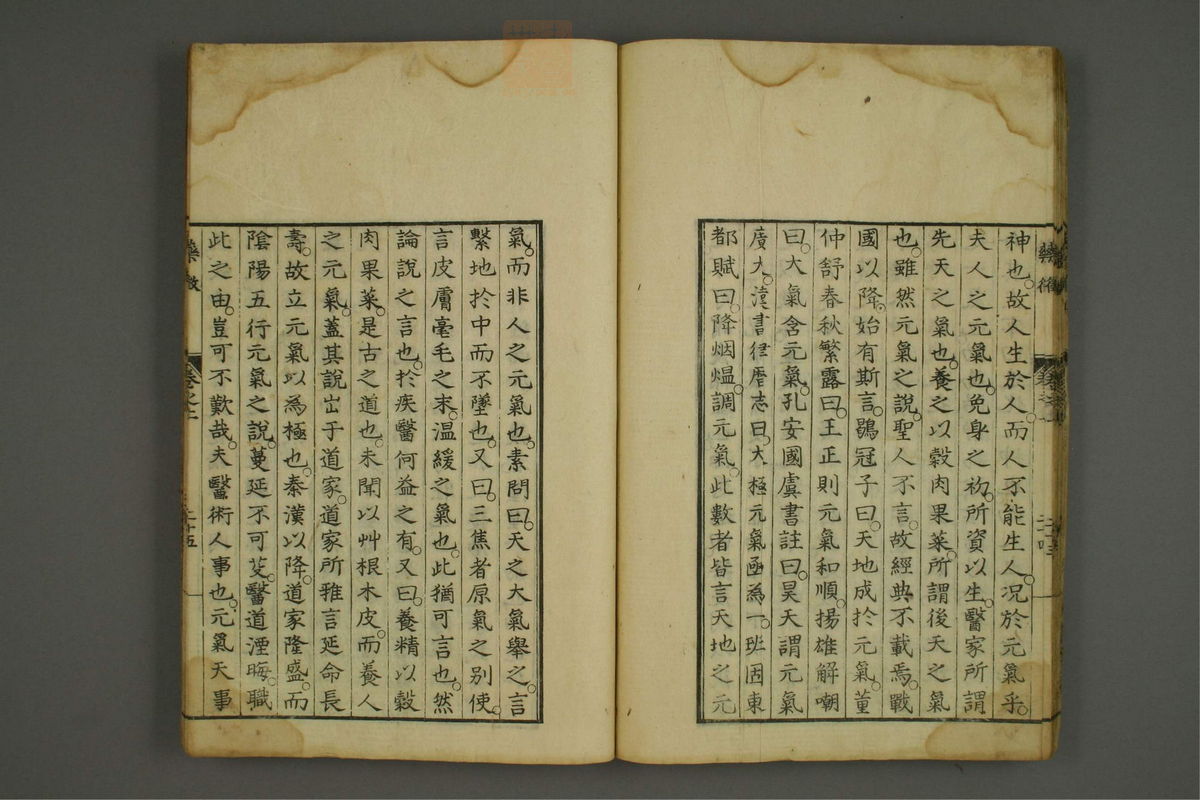 神也。故人生於人。而人不能生人。况於元氣乎。
夫人之元氣也。免身之初。所資以生。醫家所謂
先天之氣也。養之以穀肉果菜。所謂後天之氣
也。雖然元氣之說。聖人不言。故經典不載焉。戰
國以降。始有斯言。鶡冠子曰。天地成於元氣。董
仲舒春秋繁露曰。王正則元氣和順。揚雄解嘲
曰。大氣含元氣。孔安國虞書註曰。昊天謂元氣
廣大。漢書律曆志曰。大極元氣函為一。班固東
都賦曰。降烟熅。調元氣。此數者皆言天地之元
藥徵
卷之
二十四
氣。而非人之元氣也。素問曰。天之大氣舉之。言
繫地於中而不墜也。又曰。三焦者原氣之別使。
言皮膚毫毛之末。温緩之氣也。此猶可言也。然
論說之言也。於疾醫何益之有。又曰。養精以穀
肉果菜。是古之道也。未聞以艸根木皮。而養人
之元氣。蓋其說出于道家。道家所雅言延命長
壽。故立元氣以為極也。秦漢以降。道家隆盛。而
陰陽五行元氣之說。蔓延不可芟。醫道湮晦。職
此之由。豈可不歎哉。夫醫術人事也。元氣天事
藥徵
卷之二
二十五